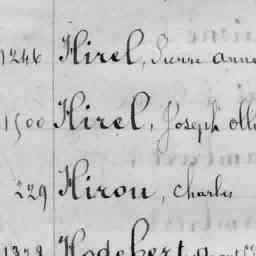 1246 Hirel, Pierre anne
1500 Hirel, Joseph olli
229 Hirou, Charles
1328 Hodebert